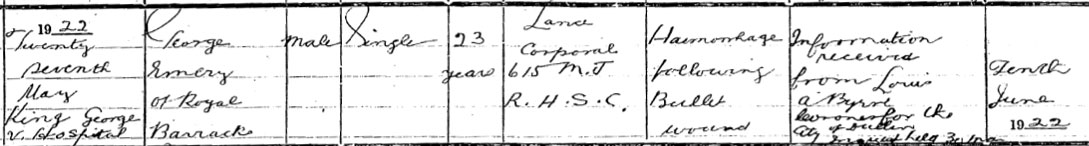 1922
Twenty
seventh
May
King George
V. Hospital
George
Emery
of Royal
Barrack
Male
Single
23
years
Lance
Corporal
615 M.T
R.H.S.C.
Haemorrhage
following
Bullet
wound
Information
received
from Louis
A Byrne
Coroner for the
City of Dublin
Inquest held 30 May
Tenth
June
1922